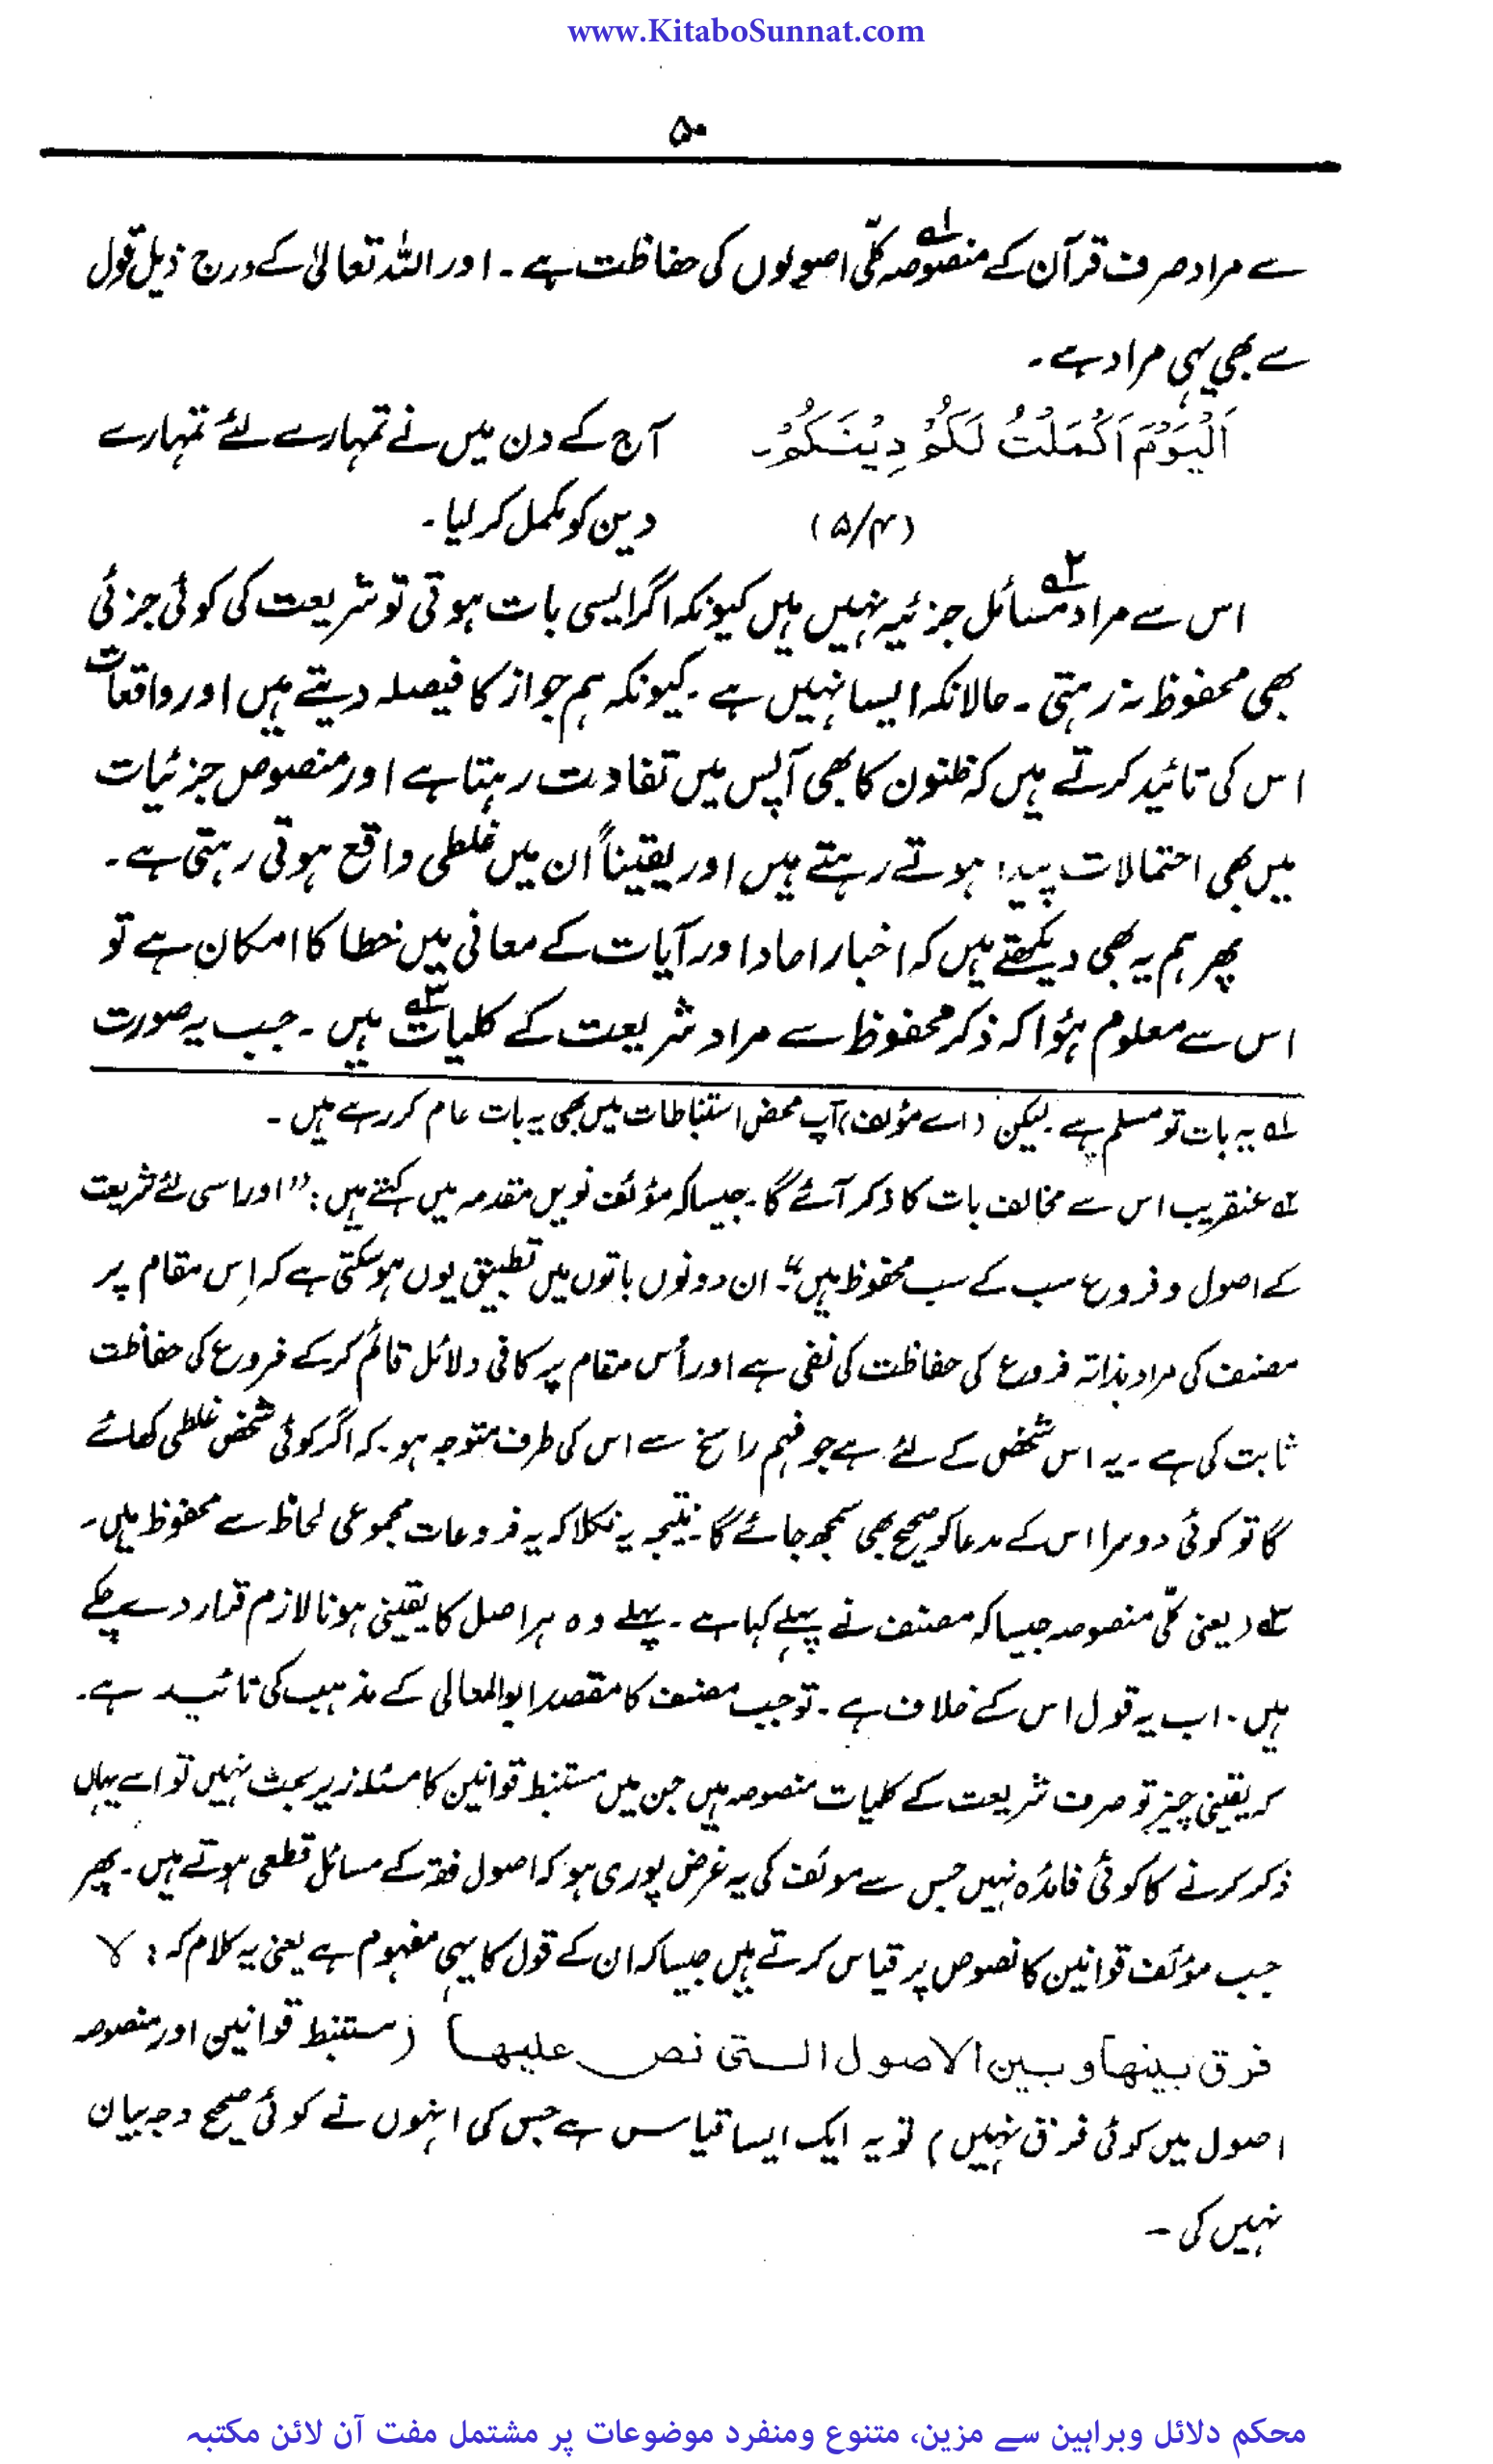 www.KitaboSunnat.com
۵۰
سے مراد صرف قرآن کے منصوصہ۱؎ کلّی اصولوں کی حفاظت ہے۔ اور اللہ تعالیٰ کے درج ذیل قول
سے بھی یہی مراد ہے۔
اَلْیَوْمَ اَکْمَلْتُ لَکُمْ دِیْنَکُمْ۔ آج کے دن میں نے تمہارے لئے تمہارے
(۵/۳) دین کو مکمل کر لیا۔
اس سے مراد۲؎ مسائل جزئیہ نہیں ہیں کیونکہ اگر ایسی بات ہوتی تو شریعت کی کوئی جزئی
بھی محفوظ نہ رہتی۔ حالانکہ ایسا نہیں ہے۔ کیونکہ ہم جواز کا فیصلہ دیتے ہیں اور واقعات
اس کی تائید کرتے ہیں کہ ظنون کا بھی آپس میں تفاوت رہتا ہے اور منصوص جزئیات
میں بھی احتمالات پیدا ہوتے رہتے ہیں اور یقیناً ان میں غلطی واقع ہوتی رہتی ہے۔
پھر ہم یہ بھی دیکھتے ہیں کہ اخبار احاد اور آیات کے معانی میں خطا کا امکان ہے تو
اس سے معلوم ہؤا کہ ذکر محفوظ سے مراد شریعت کے کلیات۳؎ ہیں۔ جب یہ صورت
۱؎ یہ بات تو مسلم ہے۔ لیکن (اے مؤلف) آپ محض استنباطات میں بھی یہ بات عام کر رہے ہیں۔
۲؎ عنقریب اس سے مخالف بات کا ذکر آئے گا۔ جیسا کہ مؤلف نویں مقدمہ میں کہتے ہیں: "اور اسی لئے شریعت
کے اصول و فروع سب کے سب محفوظ ہیں"۔ ان دونوں باتوں میں تطبیق یوں ہو سکتی ہے کہ اِس مقام پر
مصنف کی مراد بذاتہ فروع کی حفاظت کی نفی ہے اور اُس مقام پر کافی دلائل قائم کر کے فروع کی حفاظت
ثابت کی ہے۔ یہ اس شخص کے لئے ہے جو فہم راسخ سے اس کی طرف متوجہ ہو۔ کہ اگر کوئی شخص غلطی کھائے
گا تو کوئی دوسرا اس کے مدعا کو صحیح بھی سمجھ جائے گا۔ نتیجہ یہ نکلا کہ یہ فروعات مجموعی لحاظ سے محفوظ ہیں۔
۳؎ (یعنی کلّی منصوصہ جیسا کہ مصنف نے پہلے کہا ہے۔ پہلے وہ ہر اصل کا یقینی ہونا لازم قرار دے چکے
ہیں۔ اب یہ قول اس کے خلاف ہے۔ تو جب مصنف کا مقصد ابوالمعالی کے مذہب کی تائید ہے۔
کہ یقینی چیز تو صرف شریعت کے کلیات منصوصہ ہیں جن میں مستنبط قوانین کا مسئلہ زیر بحث نہیں تو اسے یہاں
ذکر کرنے کا کوئی فائدہ نہیں جس سے مولف کی یہ غرض پوری ہو کہ اصول فقہ کے مسائل قطعی ہوتے ہیں۔ پھر
جب مؤلف قوانین کا نصوص پر قیاس کرتے ہیں جیسا کہ ان کے قول کا یہی مفہوم ہے یعنی یہ کلام کہ: لا
فرق بینھا و بین الاصول التی نص علیھا (مستنبط قوانین اور منصوصہ
اصول میں کوئی فرق نہیں) تو یہ ایک ایسا قیاس ہے جس کی انہوں نے کوئی صحیح وجہ بیان
نہیں کی۔
محکم دلائل وبراہین سے مزین، متنوع ومنفرد موضوعات پر مشتمل مفت آن لائن مکتبہ